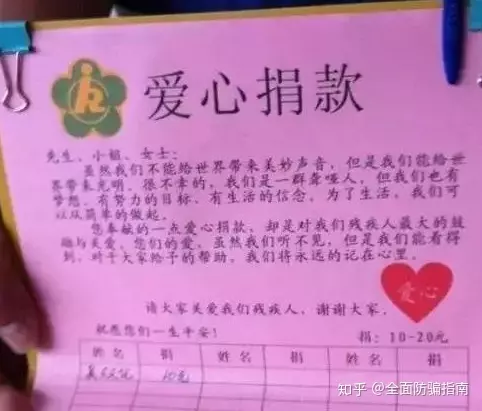 爱心捐款
先生、小姐、女士:
虽然我们不能给世界带来美妙声音,但是我们能给世
界带来光明。很不幸的,我们是一群聋哑人,但我们也有
梦想、有努力的目标、有生活的信念,为了生活,我们可
以从简单的做起。
您奉献的一点爱心捐款,却是对我们残疾人最大的鼓
励与关爱。您们的爱,虽然我们听不见,但是我们能看得
到,对于大家给予的帮助,我们将永远的记在心里。
爱心
请大家关爱我们残疾人,谢谢大家。
祝愿您们一生平安!
捐:10-20元
姓名 捐 姓名 捐 姓名 捐
10元
知乎 @全面防骗指南